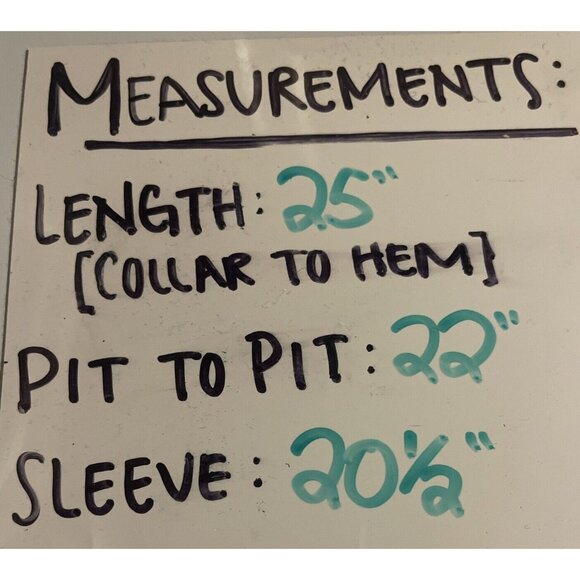 MEASUREMENTS:
LENGTH: 25"
[COLLAR TO HEM]
PIT TO PIT: 22"
SLEEVE: 20½"